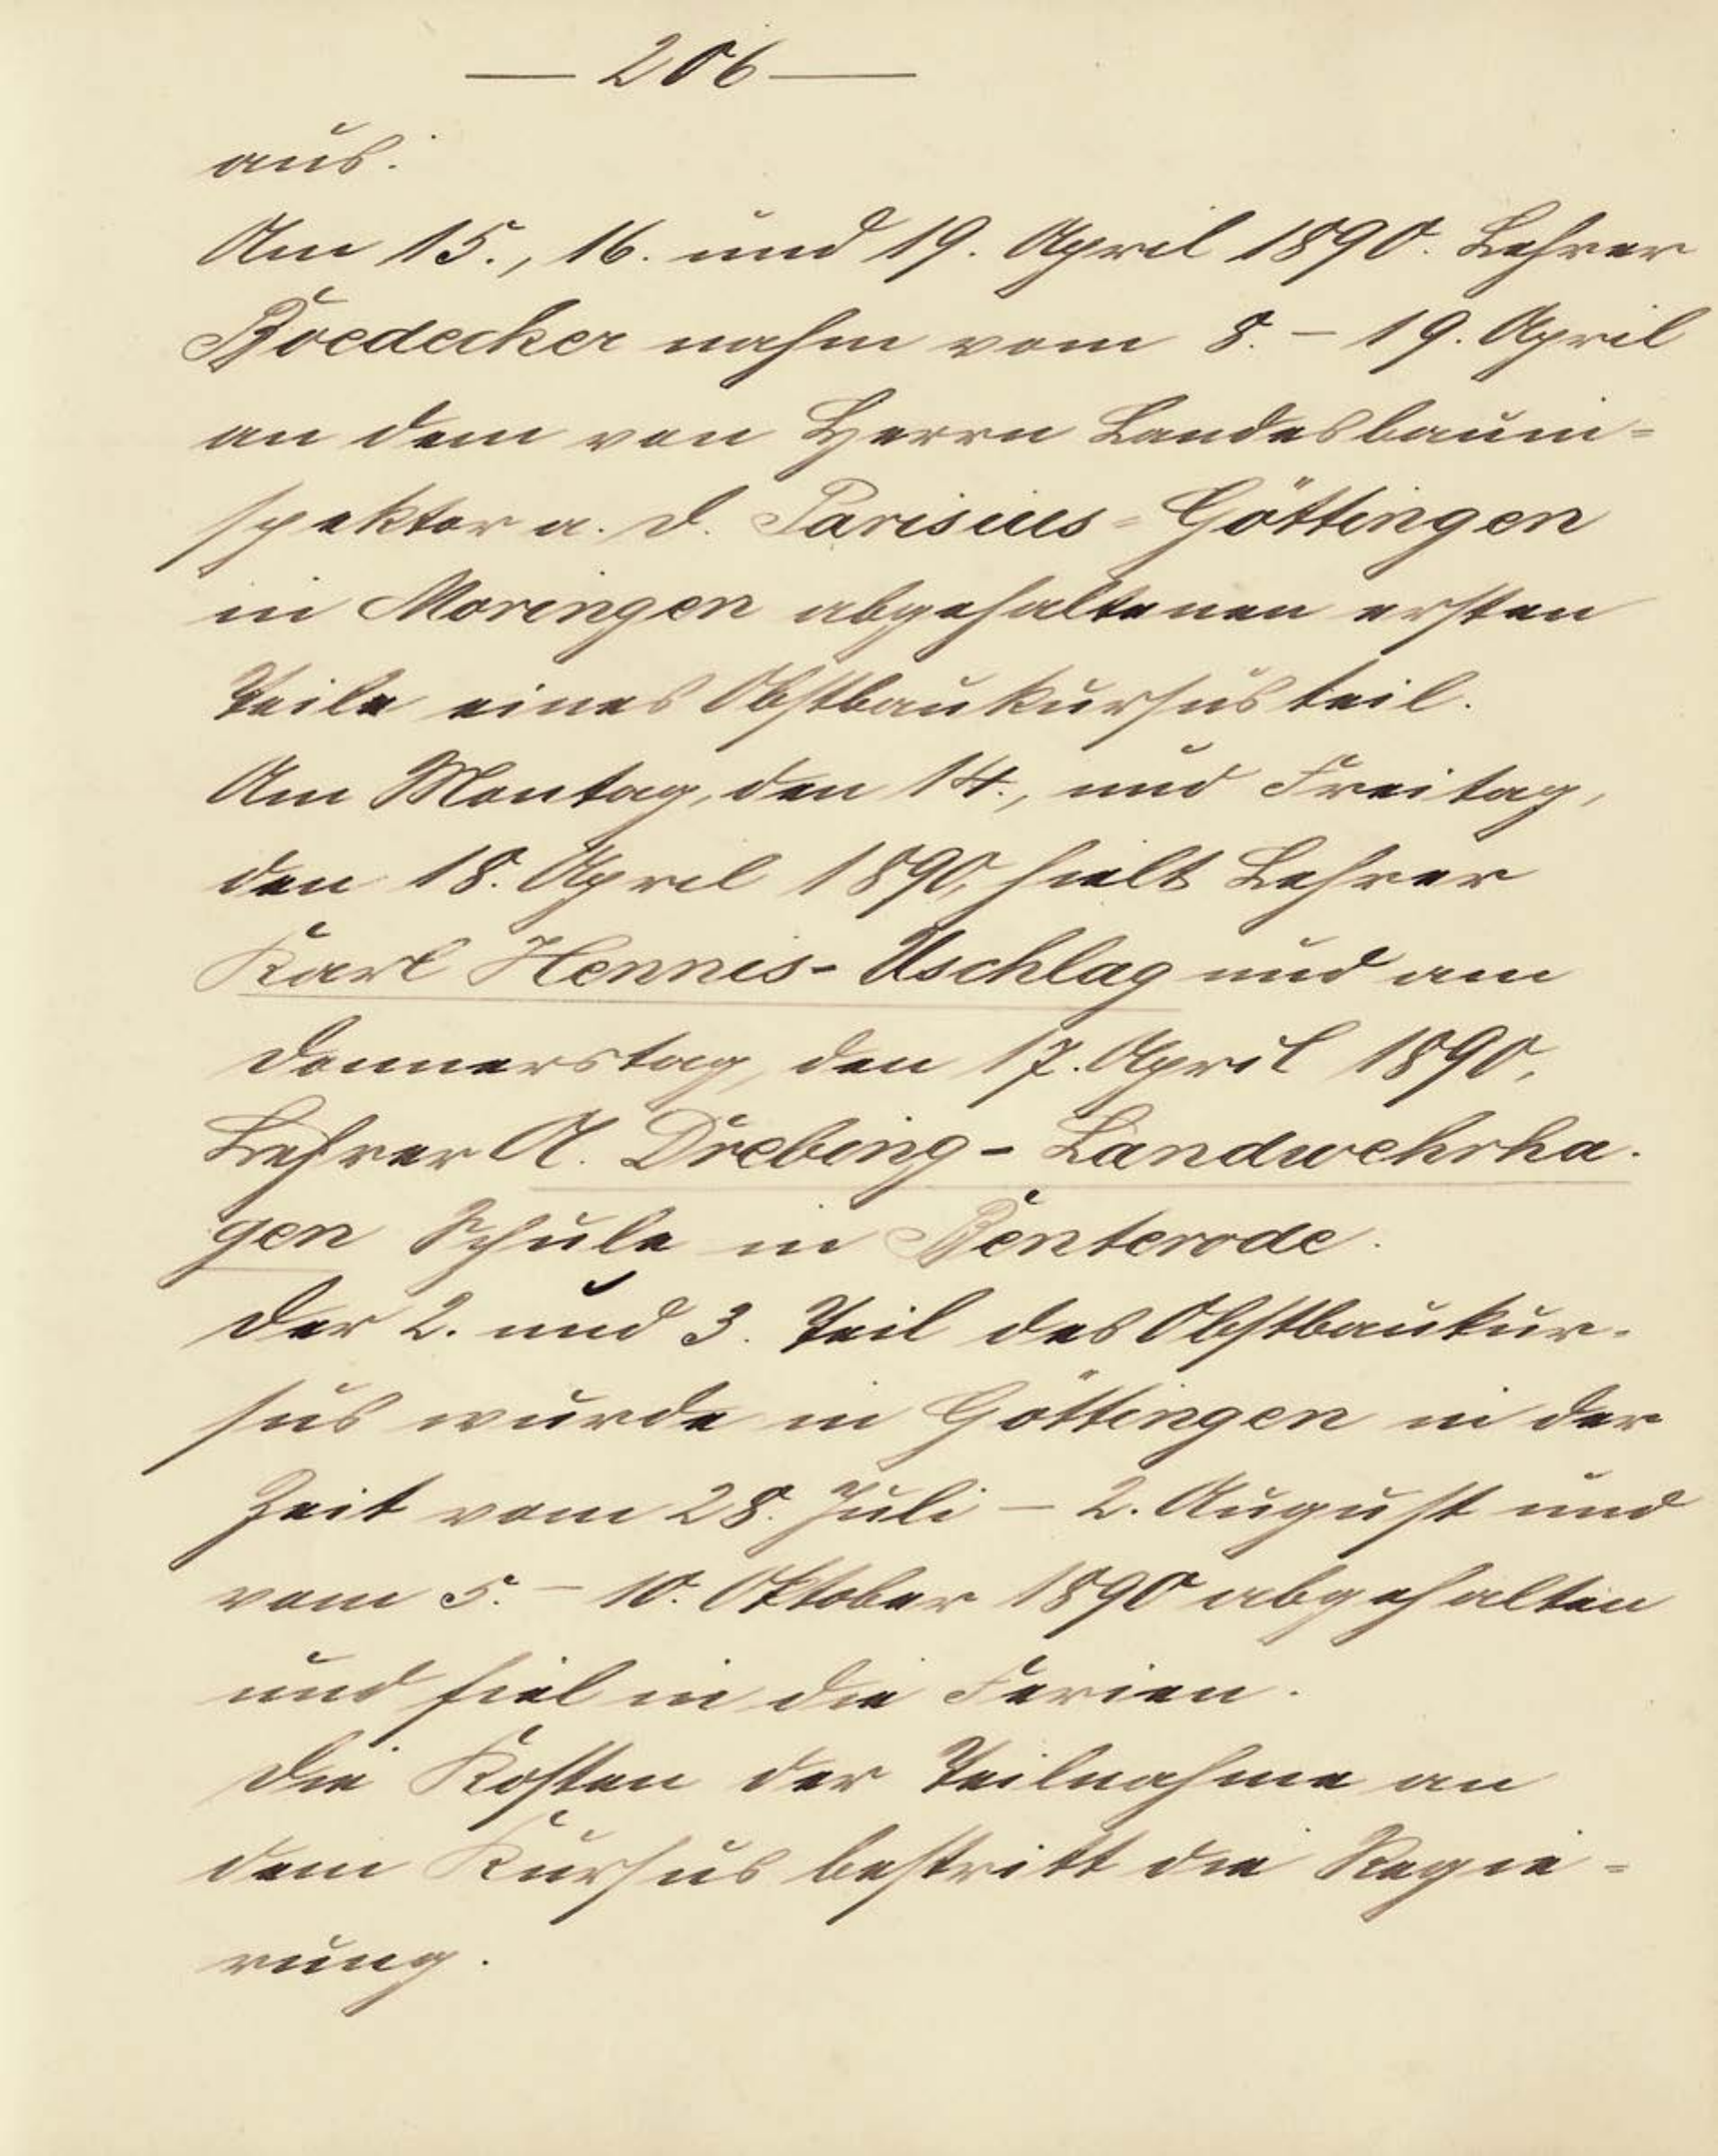 — 206 —
aus:
Am 15., 16. und 19. April 1890. Lehrer
Boedecker nahm vom 8. – 19. April
an dem von Herrn Landesbauin-
spektor a. D. Parisius-Göttingen
in Moringen abgehaltenen ersten
Teile eines Obstbaukursus teil.
Am Montag, den 14., und Freitag,
den 18. April 1890, hielt Lehrer
Karl Hennis-Uschlag und am
Donnerstag, den 17. April 1890,
Lehrer A. Drebing-Landwehrha-
gen Schule in Benterode.
Der 2. und 3. Teil des Obstbaukur-
sus wurde in Göttingen in der
Zeit vom 28. Juli – 2. August und
vom 5. – 10. Oktober 1890 abgehalten
und fiel in die Ferien.
Die Kosten der Teilnahme an
dem Kursus bestritt die Regie-
rung.